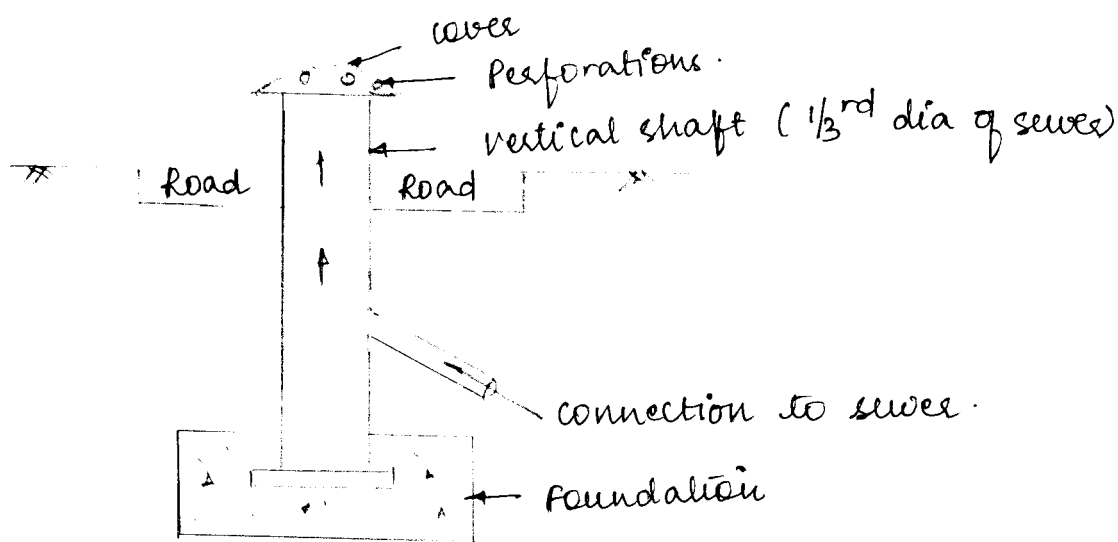 cover
Perforations.
vertical shaft ( 1/3rd dia of sewer)
Road
Road
connection to sewer.
Foundation